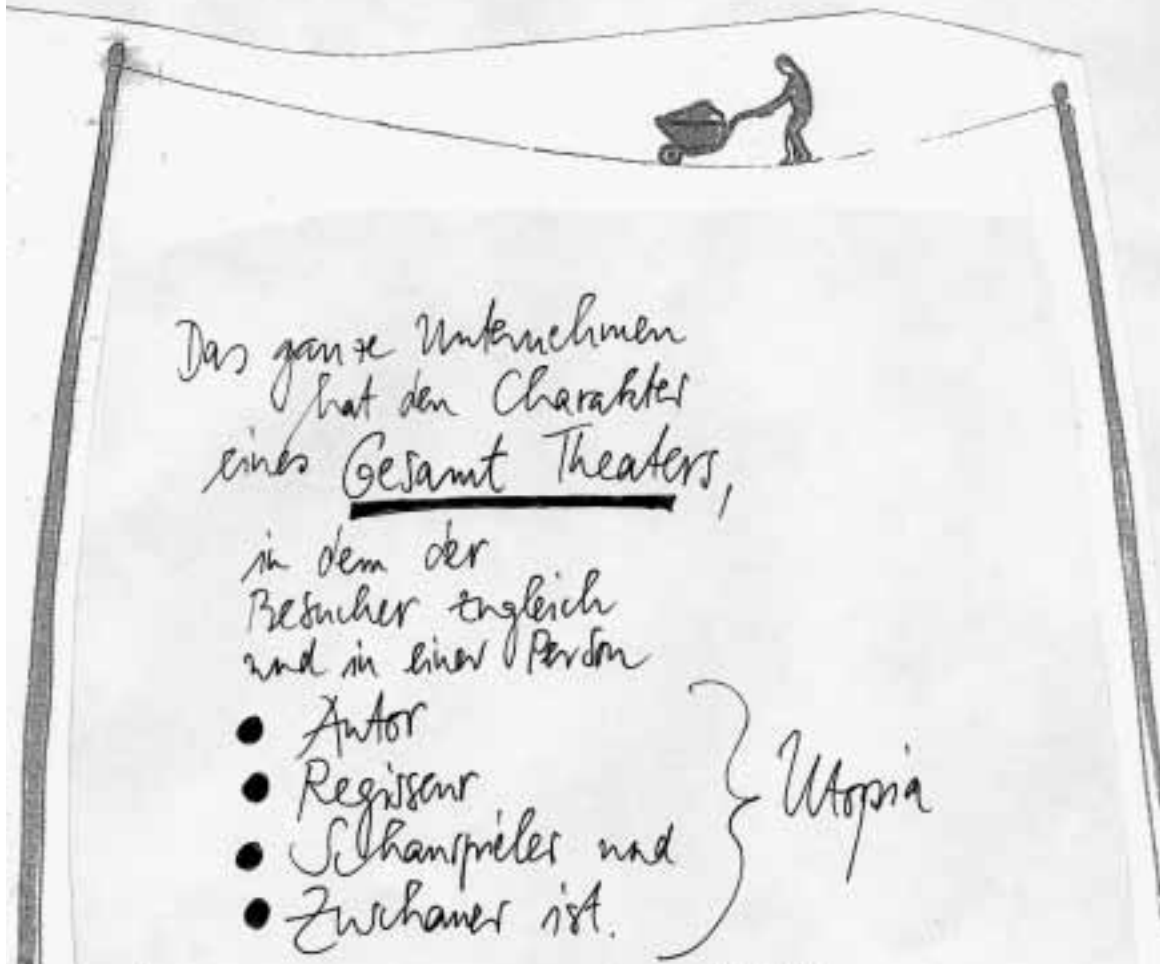 Das ganze Unternehmen
hat den Charakter
eines Gesamt Theaters,
in dem der
Besucher zugleich
und in einer Person
● Autor
● Regisseur
● Schauspieler und
● Zuschauer ist.
Utopia